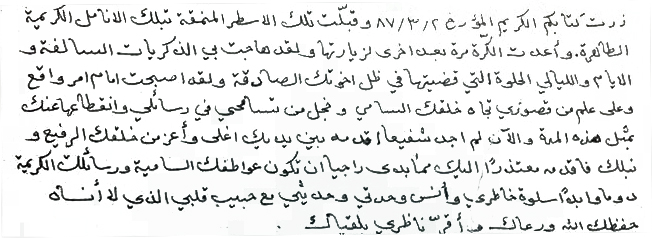 زرت كتابكم الكريم المؤرخ ٨٧/٣/٢ وقبلّت تلك الاسطر المنمقة بتلك الانامل الكريمة
الطاهرة. وأعدت الكرّة مرة بعد اخرى لزيارتها ولقد هاجت بي الذكريات السالفة و
الايام والليالي الحلوة التي قضيتها في ظل اخوتك الصادقة ولقد اصبحت امام امر واقع
وعلى علم من قصوري تجاه خلقك السامي وخجل من تسامحي في رسائلي وانقطاعها عنك
بمثل هذه المدة والآن لم اجد شفيعاً اقدمه بين يديك اغلى وأعز من خلقك الرفيع و
نبلك فأقدمه معتذراً اليك مما بدى راجياً ان تكون عواطفك السامية ورسائلك الكريمة
دوماً وابداً سلوة خاطري وأنس وحدتي وحديثي مع حبيب قلبي الذي لا أنساه
حفظك الله ورعاك وأقرّ ناظري بلقياك .